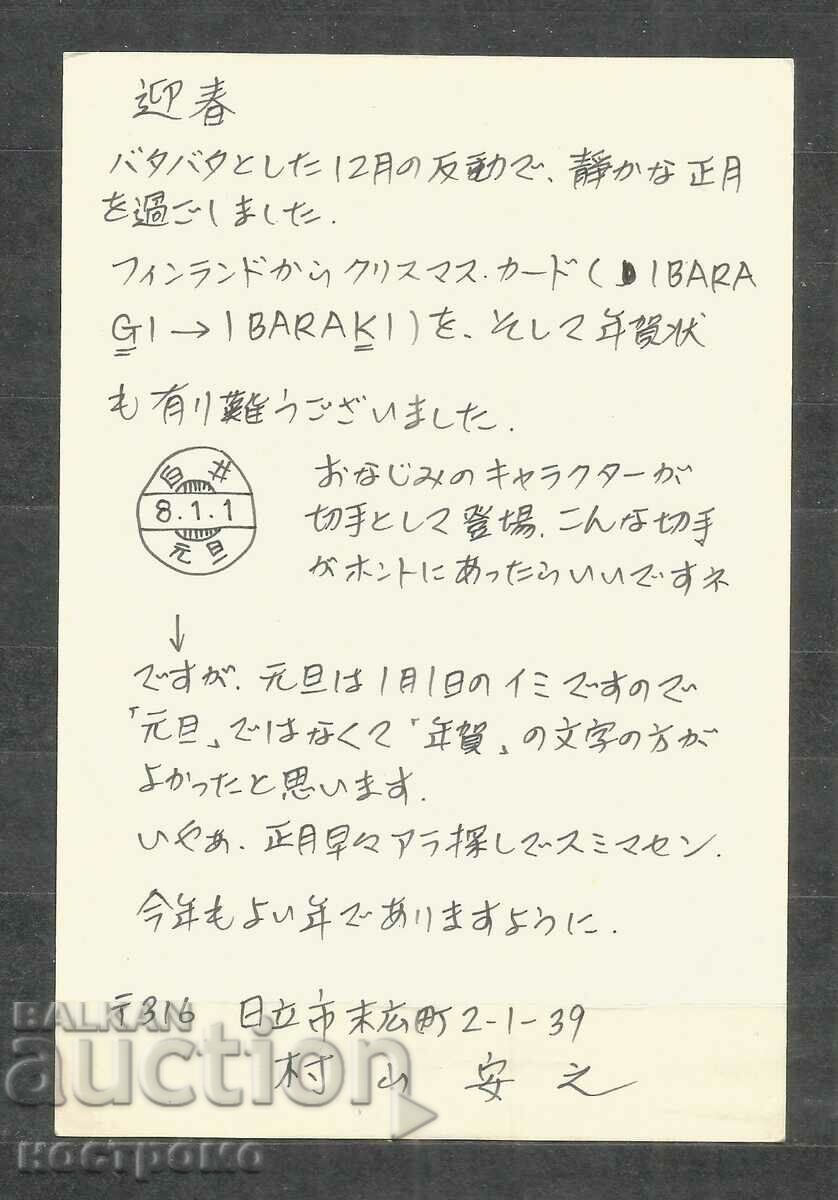 迎春
バタバタとした12月の反動で、静かな正月
を過ごしました.
フィンランドからクリスマス・カード(IBARA
GI→IBARAKI)を、そして年賀状
も有り難うございました.
白井
8.1.1
元旦
おなじみのキャラクターが
切手として登場.こんな切手
がホントにあったらいいですネ
↓
ですが、元旦は1月1日のイミですので
「元旦」ではなくて「年賀」の文字の方が
よかったと思います.
いやぁ、正月早々アラ探しでスミマセン.
今年もよい年でありますように.
〒316 日立市末広町2-1-39
村山 安之
BALKAN
auction
костромо